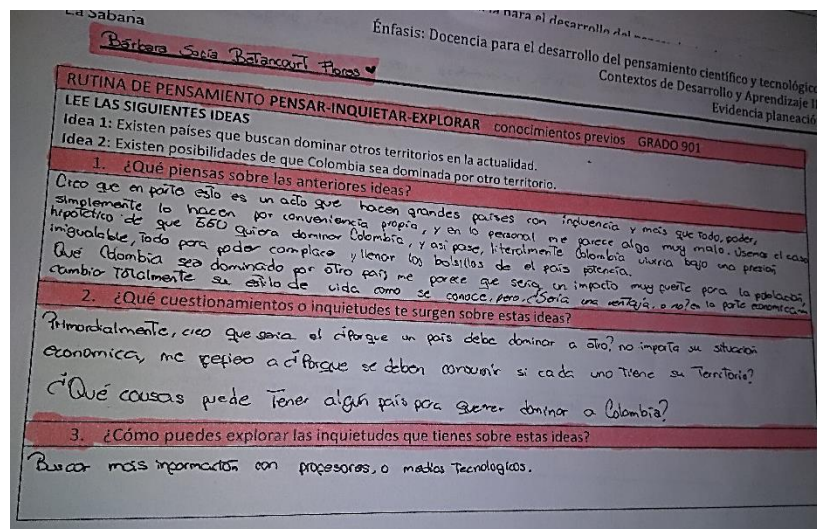 La Sabana
para el desarrollo del
Énfasis: Docencia para el desarrollo del pensamiento científico y tecnológico
Contextos de Desarrollo y Aprendizaje II
Evidencia planeació
Bárbara Sofía Betancourt Flores
RUTINA DE PENSAMIENTO PENSAR-INQUIETAR-EXPLORAR conocimientos previos GRADO 901
LEE LAS SIGUIENTES IDEAS
Idea 1: Existen países que buscan dominar otros territorios en la actualidad.
Idea 2: Existen posibilidades de que Colombia sea dominada por otro territorio.
1. ¿Qué piensas sobre las anteriores ideas?
Creo que en parte esto es un acto que hacen grandes países con influencia y más que todo, poder,
simplemente lo hacen por conveniencia propia, y en lo personal me parece algo muy malo. Usemos el caso
hipotético de que EEUU quiera dominar Colombia, y así pase, literalmente Colombia viviría bajo una presión
inigualable, todo para poder complacer y llenar los bolsillos de el país potencia.
Qué Colombia sea dominado por otro país me parece que sería un impacto muy fuerte para la población,
cambio totalmente su estilo de vida como se conoce, pero, ¿Sería una ventaja, o no? en la parte económica
2. ¿Qué cuestionamientos o inquietudes te surgen sobre estas ideas?
Primordialmente, creo que sería el ¿Porque un país debe dominar a otro? no importa su situación
economica, me refiero a ¿Porque se deben consumir si cada uno tiene su territorio?
¿Qué causas puede tener algún país para querer dominar a Colombia?
3. ¿Cómo puedes explorar las inquietudes que tienes sobre estas ideas?
Buscar más información con profesores, o medios tecnologicos.